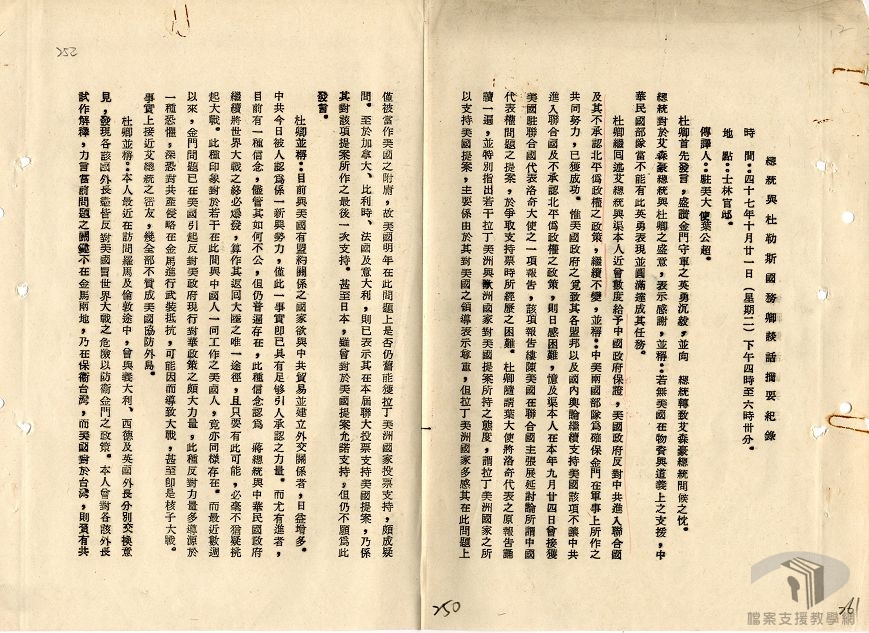 總統與杜勒斯國務卿談話摘要紀錄
時　間：四十七年十月廿一日（星期二）下午四時至六時卅分。
地　點：士林官邸。
傳譯人：駐美大使葉公超。
杜卿首先發言，盛讚金門守軍之英勇沉毅，並向　總統轉致艾森豪總統問候之忱。
總統對於艾森豪總統與杜卿之盛意，表示感謝，並稱：若無美國在物資與道義上之支援，中
華民國部隊當不能有此英勇表現並圓滿達成其任務。
杜卿繼回述艾總統與渠本人近曾數度給予中國政府保證，美國政府反對中共進入聯合國
及其不承認北平僞政權之政策，繼續不變，並稱：中美兩國部隊爲確保金門在軍事上所作之
共同努力，已獲成功。惟美國政府之覓致其各盟邦以及國內輿論繼續支持美國該項不讓中共
進入聯合國及不承認北平僞政權之政策，則日感困難，憶及渠本人在本年九月廿四日曾接獲
美國駐聯合國代表洛奇大使之一項報告，該項報告縷陳美國在聯合國主張展延討論所謂中國
代表權問題之提案，於爭取支持票時所經歷之困難。杜卿隨請葉大使將洛奇代表之原報告誦
讀一遍，並特別指出若干拉丁美洲與歐洲國家對美國提案所持之態度，謂拉丁美洲國家之所
以支持美國提案，主要係由於其對美國之領導表示尊重，但拉丁美洲國家多感其在此問題上
261
僅被當作美國之附庸，故美國明年在此問題上是否仍舊能獲拉丁美洲國家投票支持，頗成疑
問。至於加拿大、比利時、法國及意大利，則已表示其在本屆聯大投票支持美國提案，乃係
其對該項提案所作之最後一次支持。甚至日本，雖曾對於美國提案允諾支持，但仍不願爲此
發言。
杜卿並稱：目前與美國有盟約關係之國家欲與中共貿易並建立外交關係者，日益增多。
中共今日被人認爲係一新興勢力，僅此一事實卽已具有足够引人承認之力量。而尤有進者，
目前有一種信念，儘管其如何不公，但仍普遍存在，此種信念認爲　蔣總統與中華民國政府
繼續將世界大戰之終必爆發，算作其返回大陸之唯一途徑，且只要有此可能，必毫不猶疑挑
起大戰。此種印象對於若干在此間與中國人一同工作之美國人，竟亦同樣存在。而最近數週
以來，金門問題已在美國引起反對美政府現行對華政策之頗大力量，此種反對力量多導源於
一種恐懼，深恐對共產侵略在金馬進行武裝抵抗，可能因而導致大戰，甚至卽是核子大戰。
事實上接近艾總統之密友，幾全部不贊成美國協防外島。
杜卿並稱：本人最近在訪問羅馬及倫敦途中，曾與義大利、西德及英國外長分別交換意
見，發現各該國外長盡皆反對美國冒世界大戰之危險以防衞金門之政策。本人曾對各該外長
試作解釋，力言當前問題之關鍵不在金馬兩地，乃在保衞台灣，而美國對於台灣，則須有共
250
檔案支援教學網